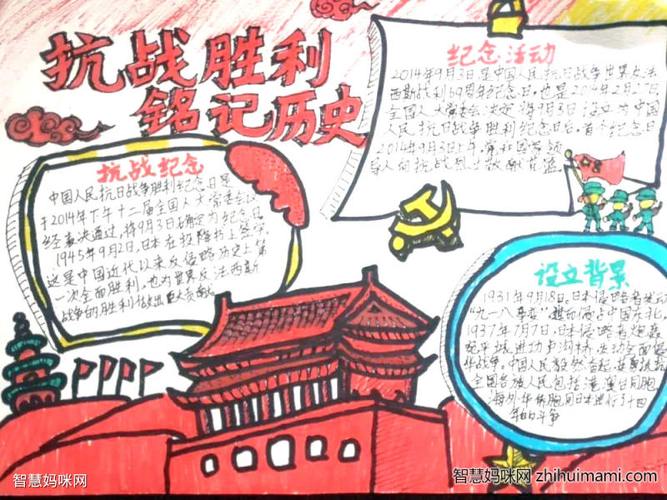 抗战胜利
铭记历史
纪念活动
2014年9月3日是中国人民抗日战争世界反法
西斯战利69周年纪念日,也是2014年2月27日
全国人大常委会决定将9月3日设立为中国
人民抗日战争胜利纪念日后,首个纪念日
2014年9月3日上午,
导人向抗战烈士敬献花篮
抗战纪念
中国人民抗日战争胜利纪念日是
于2014年下午十二届全国人大常委会
经表决通过,将9月3日确定为纪念日
1945年9月2日,日本在投降书上签字
这是中国近代以来反侵略历史上第
一次全面胜利,也为世界反法西斯
战争的胜利做出巨大贡献
设立背景
1931年9月18日,日本侵略者发动
"九一八事变",中国东北。
1937年7月7日,日本侵略者炮轰
城进攻卢沟桥,发动全面侵
华战争。中国人民毅然奋起
全国各族人民包括港澳台同胞
海外华侨胞同日本进行了十四
年的斗争
智慧妈咪网
智慧妈咪网 zhihuimami.com